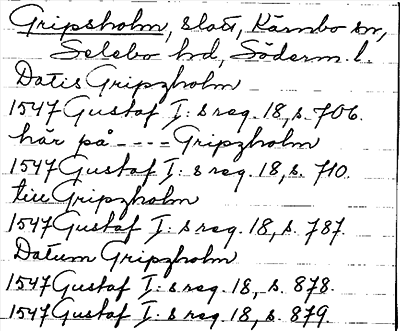 Gripsholm, slott, Kärnbo sn,
Selebo hd, Söderm. l.
Datis Gripzholm
1547 Gustaf I:s reg. 18, s. 706.
här på - - - - Gripzholm
1547 Gustaf I:s reg. 18, s. 710.
till Gripzholm
1547 Gustaf I:s reg. 18, s. 787.
Datum Gripzholm
1547 Gustaf I:s reg. 18, s. 878.
1547 Gustaf I:s reg. 18, s. 879.